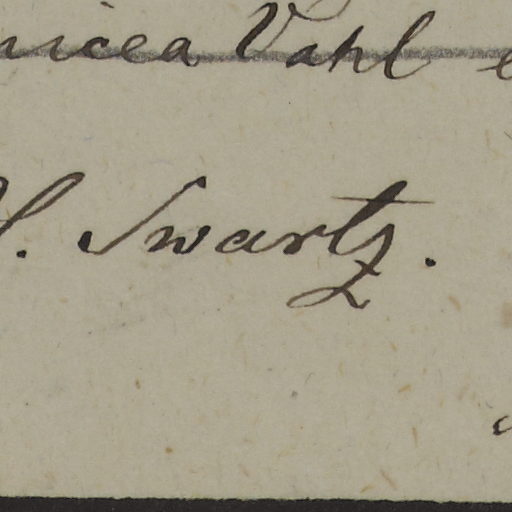 nicea Vahl e
. Swartz.